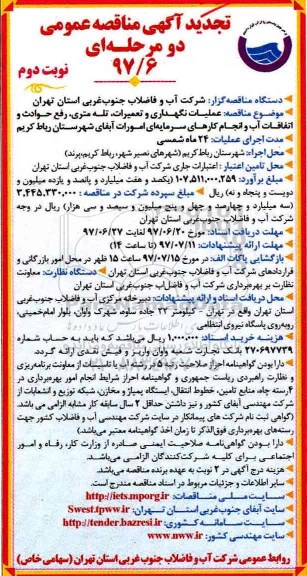 تجدید آگهی مناقصه عمومی
دو مرحله‌ای
۹۷/۶
نوبت دوم
دستگاه مناقصه‌گزار: شرکت آب و فاضلاب جنوب‌غربی استان تهران
موضوع مناقصه: عملیات نگهداری و تعمیرات، تله متری، رفع حوادث و
اتفاقات آب و انجام کارهای سرمایه‌ای امورات آبفای شهرستان رباط کریم
مدت اجرای عملیات: ۲۴ ماه شمسی
محل اجرا: شهرستان رباط کریم (شهرهای نصیر شهر، رباط کریم،پرند)
محل تامین اعتبار: اعتبارات جاری شرکت آب و فاضلاب جنوب‌غربی استان تهران
مبلغ برآورد: ۱۰۷,۵۱۱,۰۰۰,۲۵۹ (یکصد و هفت میلیارد و پانصد و یازده میلیون و
دویست و پنجاه و نه) ریال مبلغ سپرده شرکت در مناقصه: ۳,۴۴۵,۳۳۰,۰۰۰
(سه میلیارد و چهارصد و چهل و پنج میلیون و سیصد و سی هزار) ریال در وجه
شرکت آب و فاضلاب جنوب‌غربی استان تهران
مهلت دریافت اسناد: مورخ ۹۷/۰۶/۲۰ لغایت ۹۷/۰۶/۲۷
مهلت ارائه پیشنهادات: ۹۷/۰۷/۱۱ (تا ساعت ۱۴)
بازگشایی پاکات الف: در مورخ ۹۷/۰۷/۱۵ ساعت ۱۵ ظهر در محل امور بازرگانی و
قراردادهای شرکت آب و فاضلاب جنوب‌غربی استان تهران دستگاه نظارت: معاونت
نظارت بر بهره‌برداری شرکت آب و فاضلاب جنوب‌غربی استان تهران
محل دریافت اسناد و ارائه پیشنهادات: دبیرخانه مرکزی آب و فاضلاب جنوب‌غربی
استان تهران واقع در تهران - کیلومتر ۲۲ جاده ساوه، شهرک واوان، بلوار امام‌خمینی،
روبه‌روی پاسگاه نیروی انتظامی
هزینه خرید اسناد: ۱,۰۰۰,۰۰۰ ریال می‌باشد که باید به حساب شماره
۲۷۰۶۹۷۷۳۹ بانک تجارت شعبه واوان واریز و فیش نقدی ارائه گردد.
دارا بودن گواهینامه احراز صلاحیت رتبه ۵ در رشته آب یا تاسیسات از معاونت برنامه‌ریزی
و نظارت راهبردی ریاست جمهوری و گواهینامه احراز شرایط انجام امور بهره‌برداری در
شرکت مهندسی آبفای کشور و نیز داشتن حداقل ۲ سال سابقه کار مشابه الزامی می باشد.
(گواهی ثبت نام شرکت های پیمانکار در سایت شرکت مهندسی آب و فاضلاب کشور جهت
رسته‌های بهره‌برداری فوق‌الذکر تا زمان اخذ گواهینامه معتبر می‌باشد)
دارا بودن گواهی‌نامه صلاحیت ایمنی صادره از وزارت کار، رفاه و امور
اجتماعی برای کلیه شرکت‌کنندگان الزامی می‌باشد.
هزینه درج آگهی در ۲ نوبت به عهده برنده مناقصه می‌باشد.
سایر اطلاعات و جزئیات مربوط در اسناد مناقصه مندرج است.
سایت ملی مناقصات: http://iets.mporg.ir
سایت آبفای جنوب‌غربی استان تهران: Swest.tpww.ir
سایت سامانه کشوری: http://tender.bazresi.ir
سایت مهندسی کشور: www.nww.ir
روابط عمومی شرکت آب و فاضلاب جنوب غربی استان تهران (سهامی خاص)